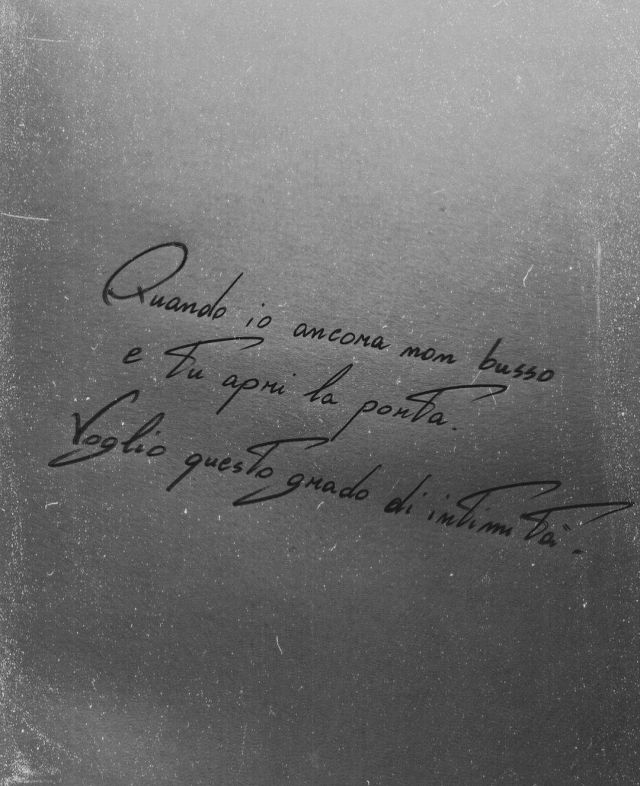 Quando io ancora non busso
e tu apri la porta.
Voglio questo grado di intimità.